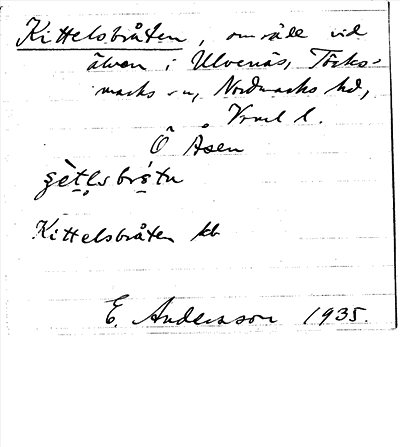 Kittelsbråten, område vid
älven i Ulvenäs, Töcks-
marks sn, Nordmarks hd,
Vrml l.
Ö Åsen
Kittelsbråten kb
E. Andersson 1935.